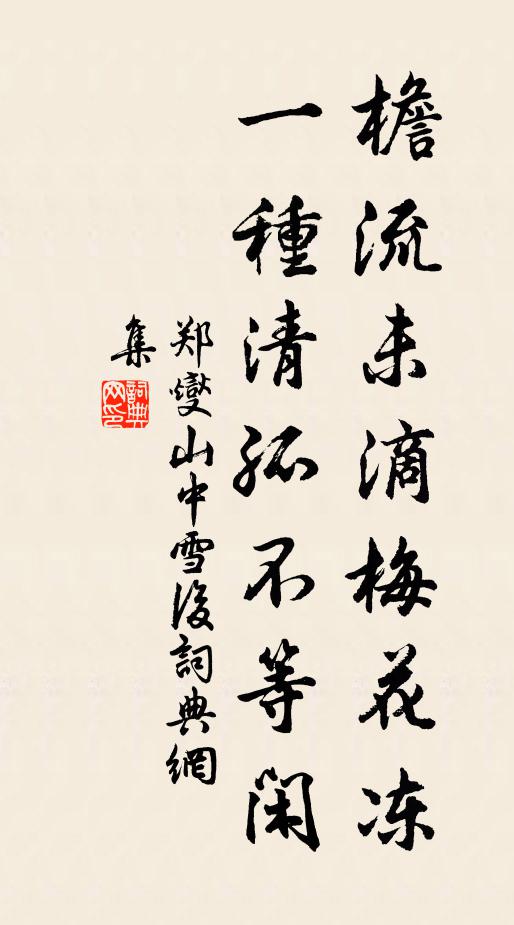 檐流未滴梅花冻
一種清孤不等閑
郑燮山中雪後詞典網
集
詞典
网印